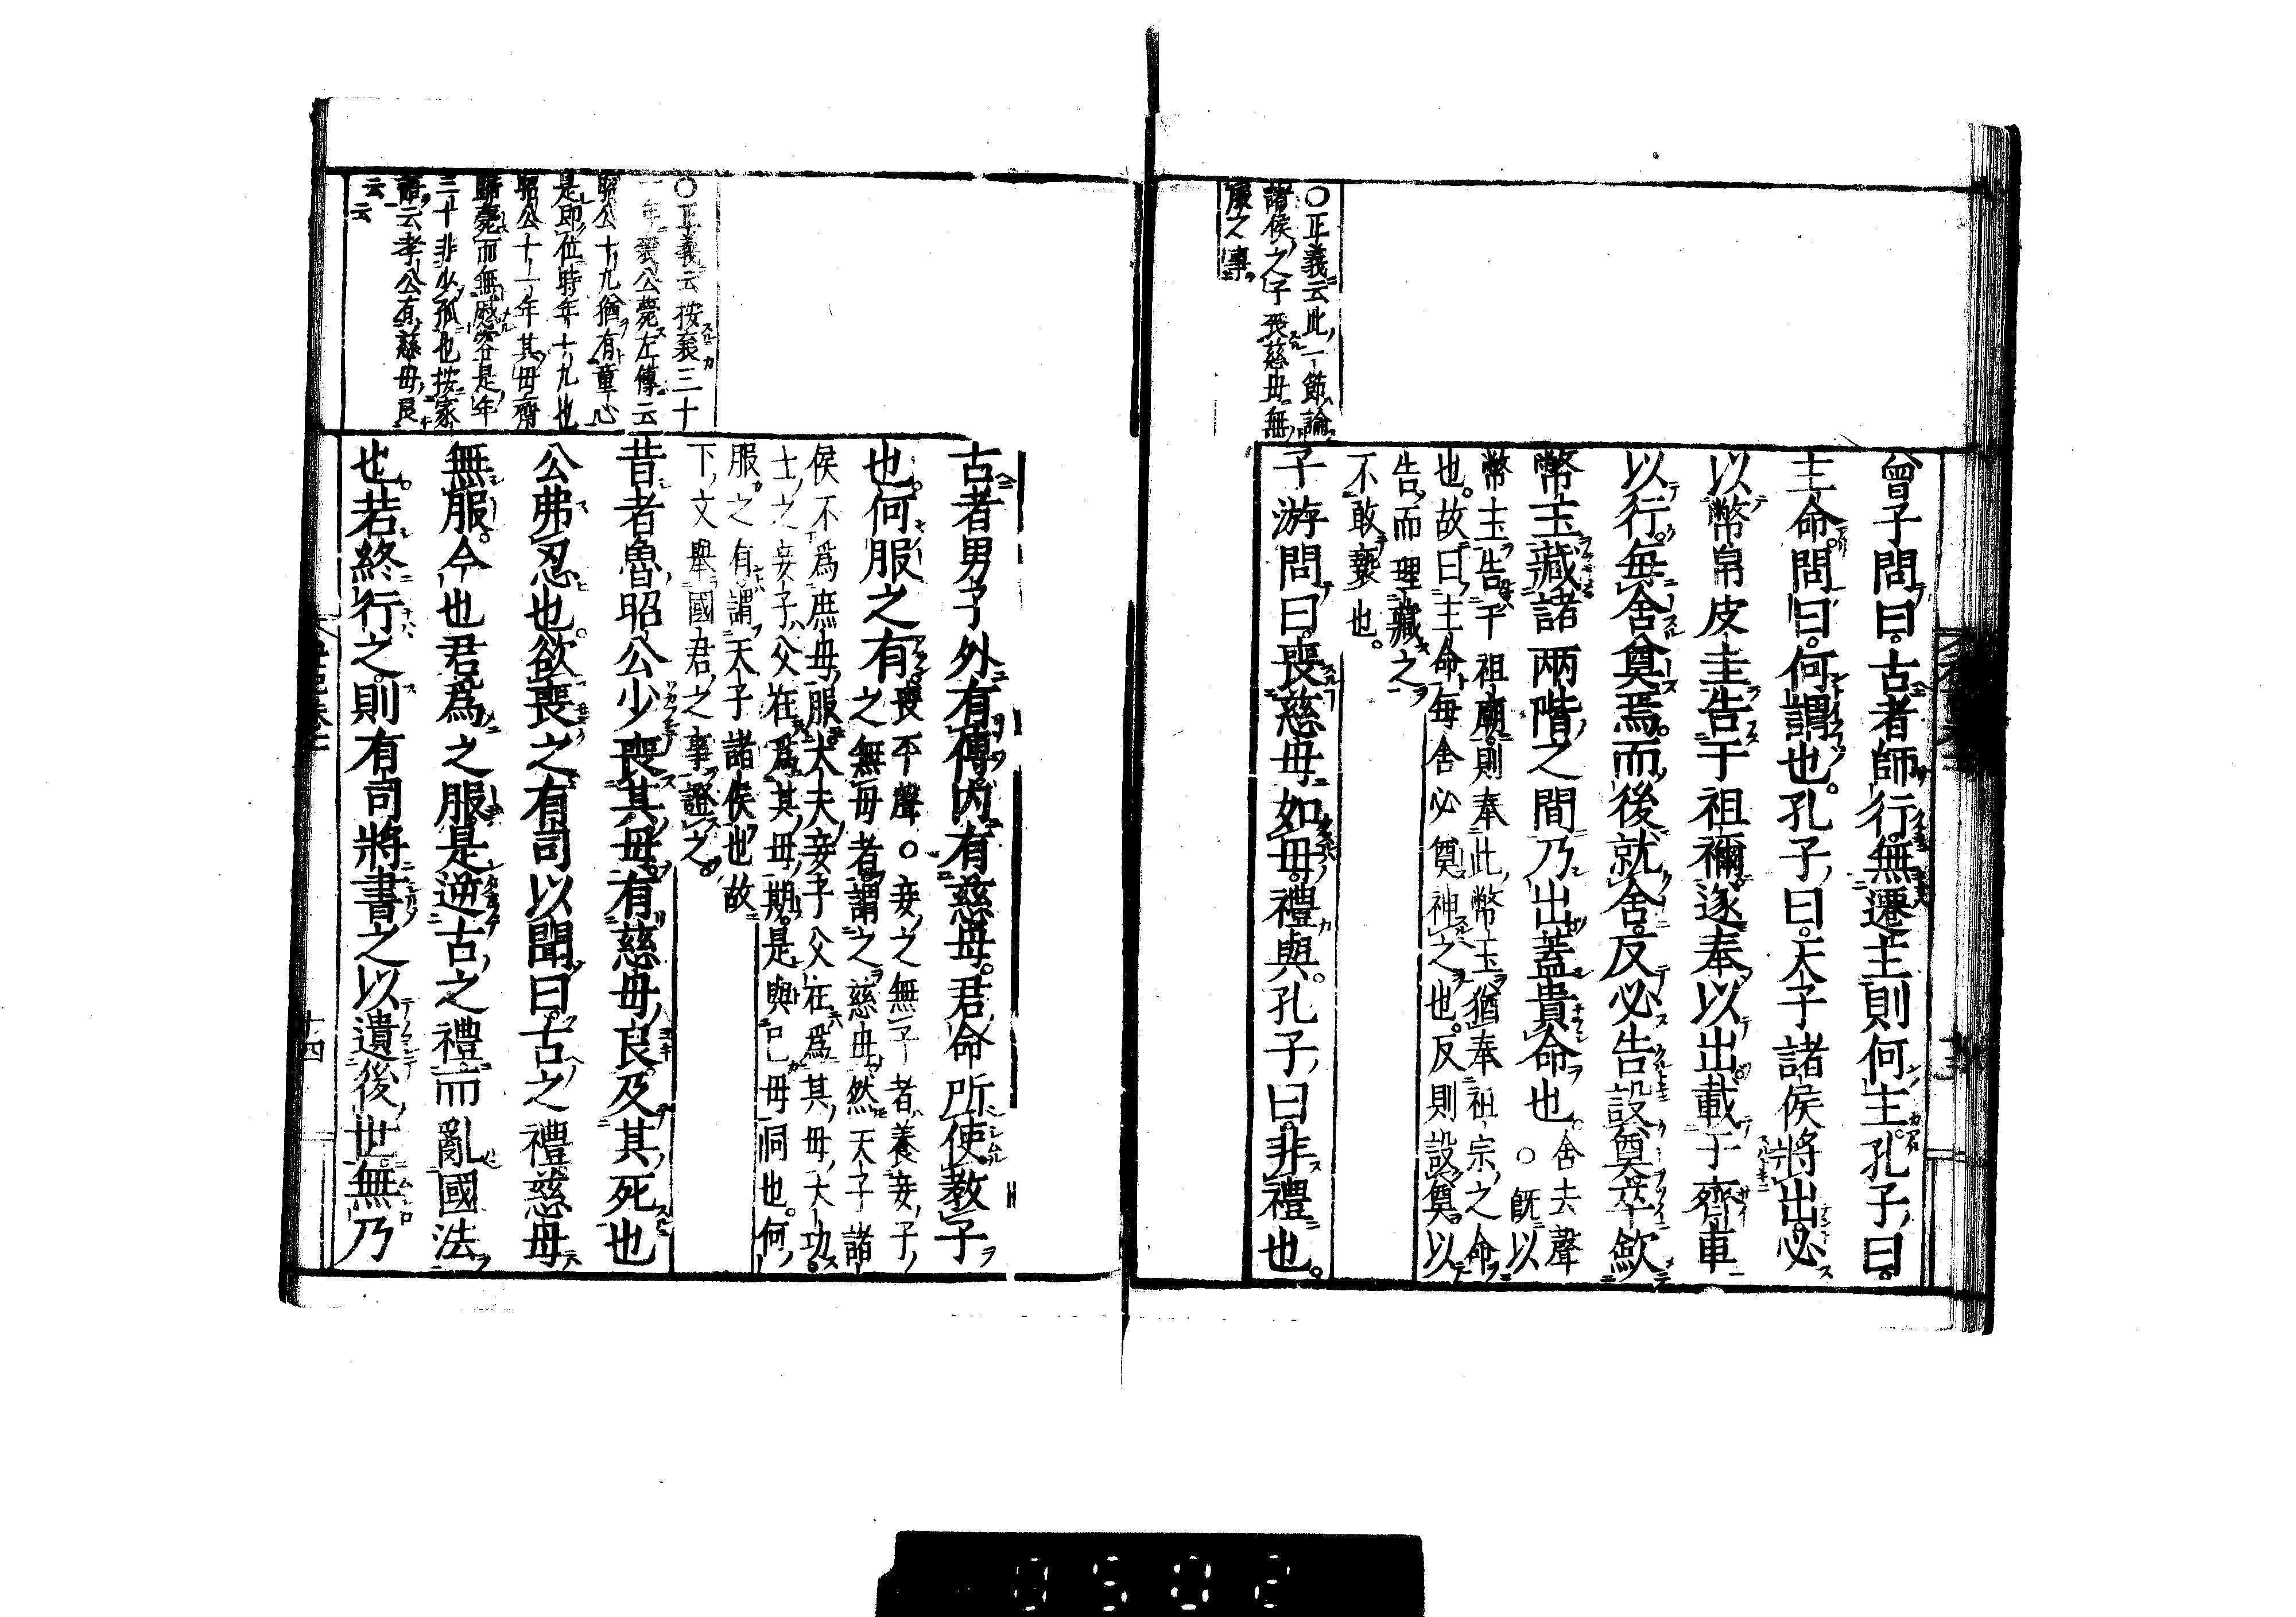 曾子問曰。古者師行。無遷主。則何主。孔子曰。
主命。問曰。何謂也。孔子曰。天子諸侯將出。必
以幣帛皮圭。告于祖禰。遂奉以出。載于齊車
以行。每舍奠焉。而後就舍。反必告。設奠卒。斂
幣玉。藏諸兩階之間。乃出。蓋貴命也。
舍去聲
○既以
幣玉告于祖廟。則奉此幣玉。猶奉祖宗之命
也。故曰主命。每舍必奠。神之也。反則設奠。以
告。而埋藏之。
不敢褻也。
子游問曰。喪慈母如母。禮與。孔子曰。非禮也。
○正義云此一節論
諸侯之子喪慈母無
服之事
古者男子外有傅。內有慈母。君命所使教子
也。何服之有。
喪平聲。○妾之無子者。養妾子
之無母者。謂之慈母。然天子諸
侯不爲庶母服。大夫妾子父在。爲其母大功。
士之妾子。父在。爲其母期。是與己母同也。何
服之有。謂天子諸侯也。故
下文舉國君之事證之。
昔者魯昭公少喪其母。有慈母良。及其死也
公弗忍也。欲喪之。有司以聞曰。古之禮慈母
無服。今也君爲之服。是逆古之禮。而亂國法
也。若終行之。則有司將書之。以遺後世。無乃
○正義云按襄三十
一年襄公薨左傳云
昭公十九猶有童心
是即位時年十九也
昭公十一年其母齊
歸薨而無慼容是年
三十非少孤也按家
語云孝公有慈母良
云云
十四
0502